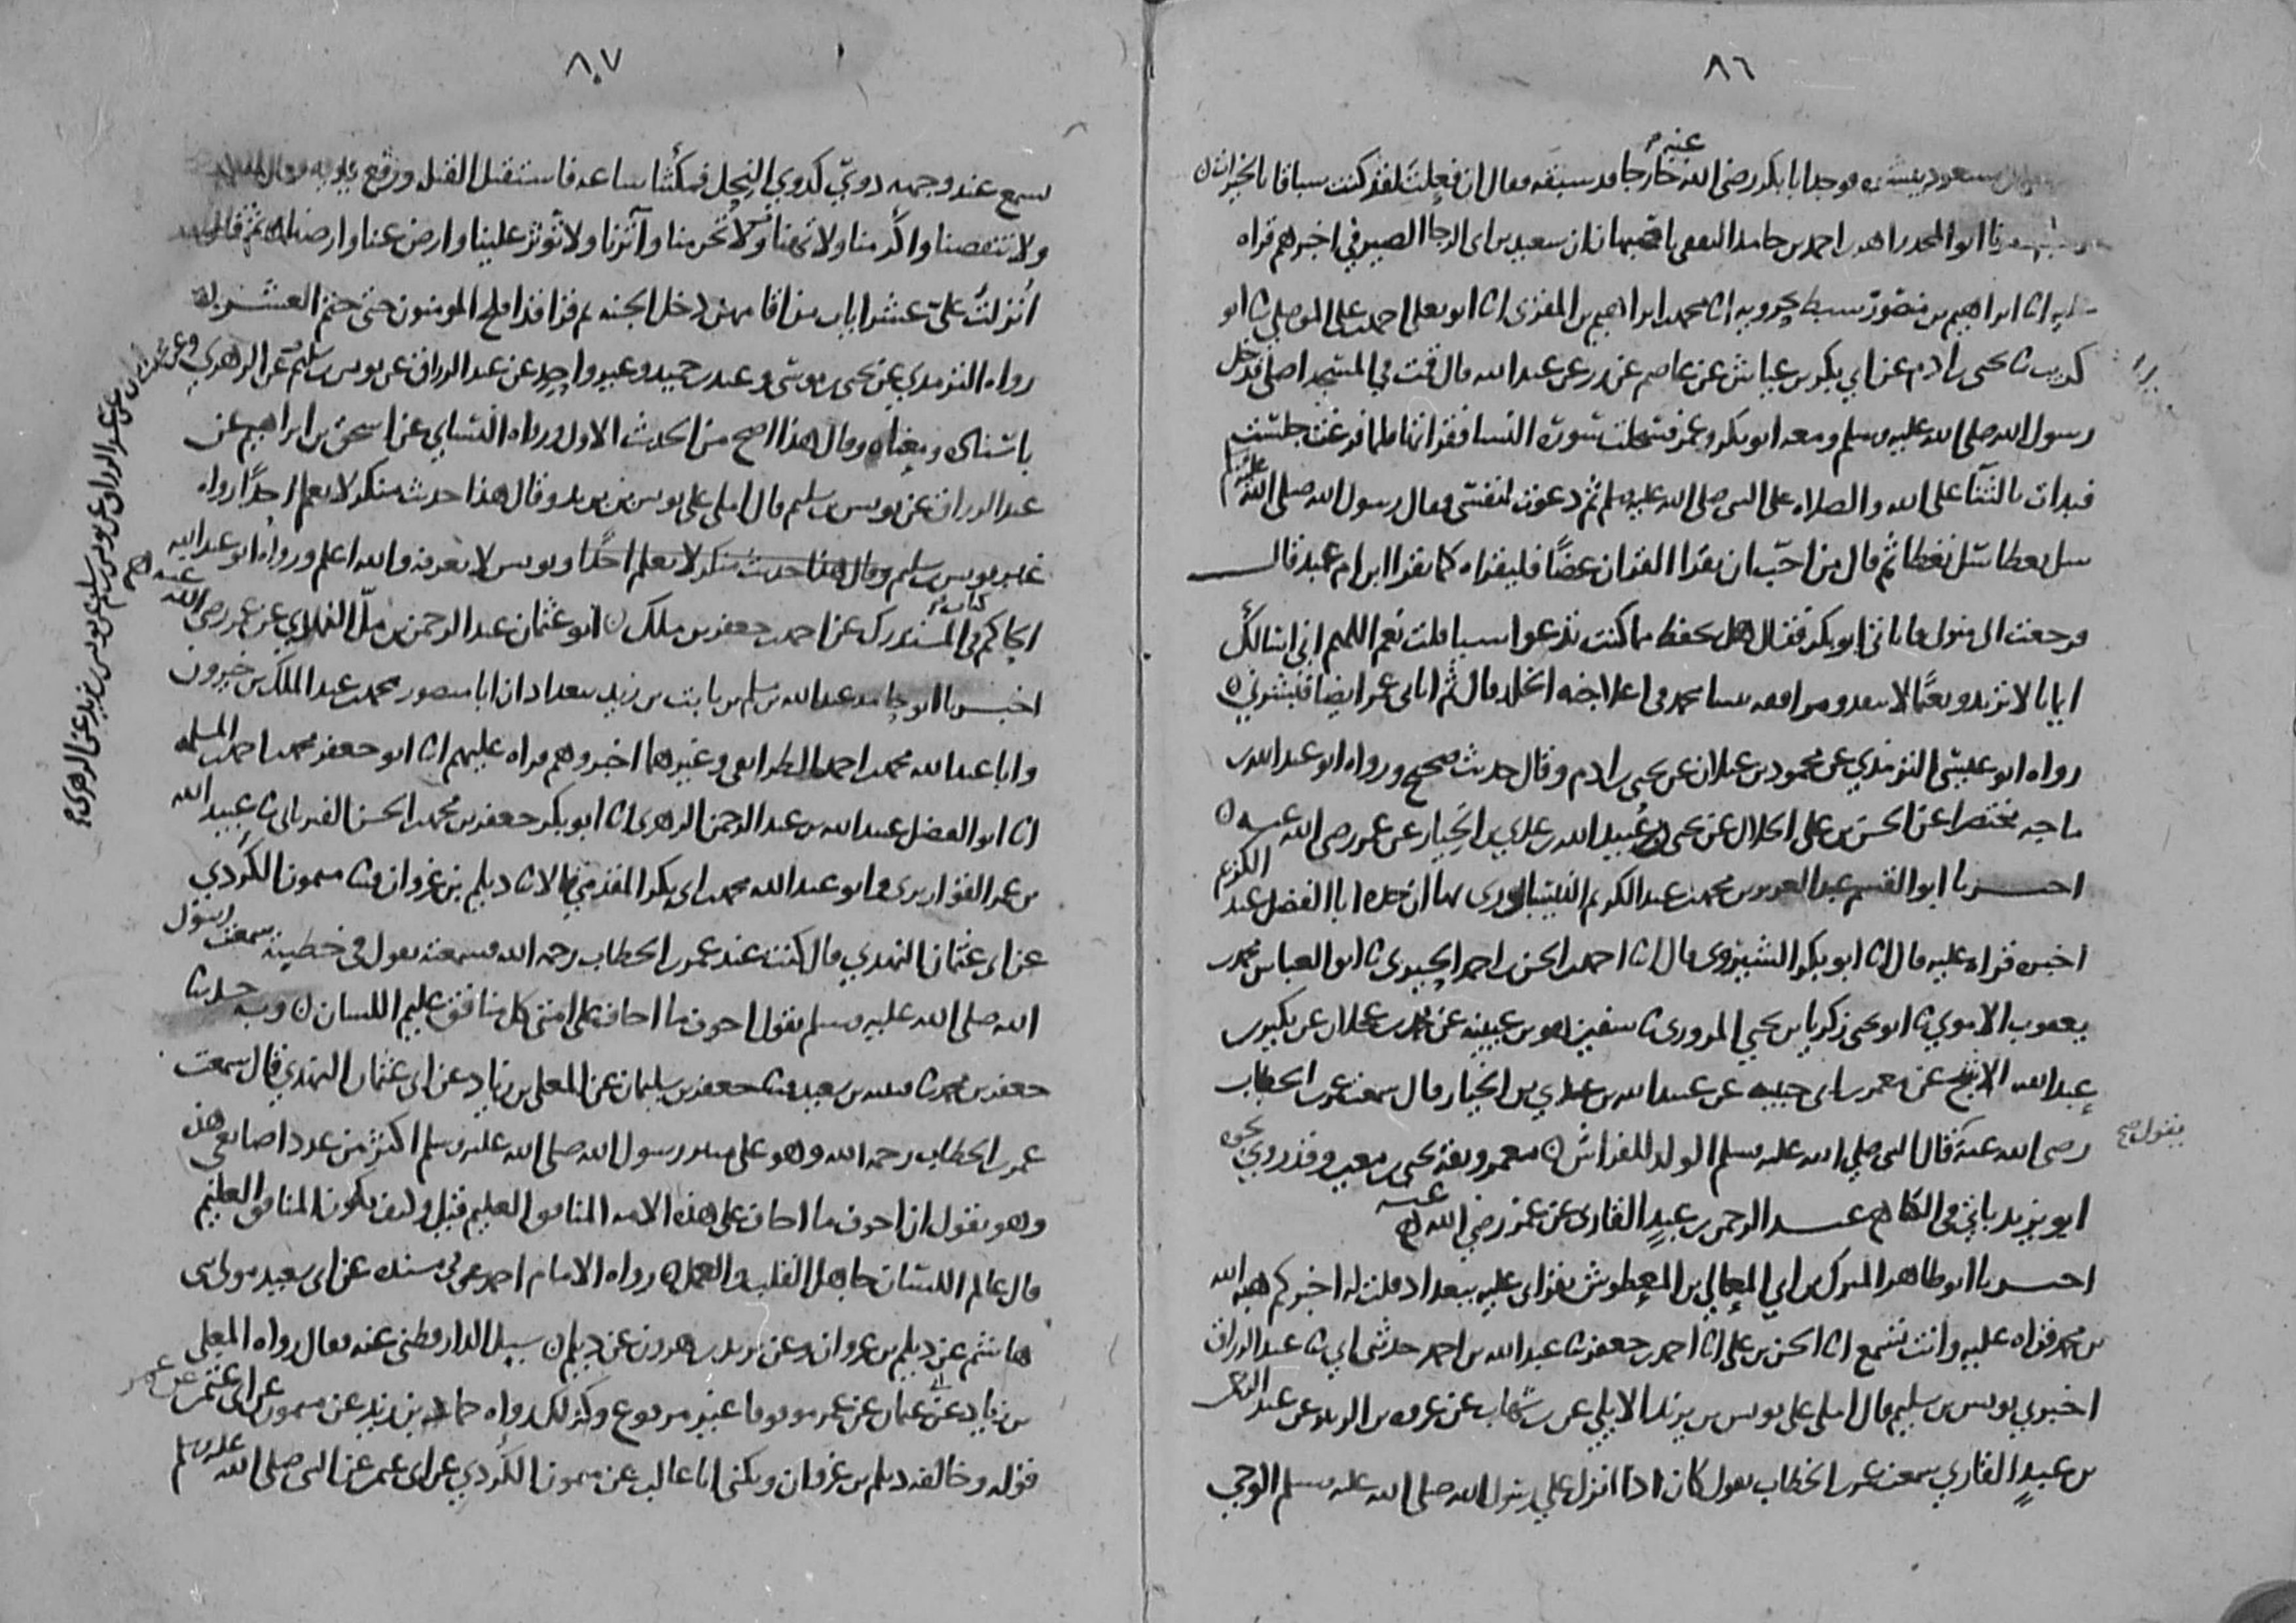 ٨٦
مسعود يبشره فوجد ابا بكر رضي الله عنه خارجا قد سبقه فقال ان فعلت لقد كنت سباقا بالخير
احمد بن حامد الثقفي باصبهان ان سعيد بن ابي الرجا الصيرفي اخبرهم قراه
عليه انا ابراهيم بن منصور سبط بحرويه انا محمد بن ابراهيم بن المقرى انا ابو يعلى احمد بن علي الموصلي ثنا ابو
كريب ثنا يحيى بن ادم عن ابي بكر بن عياش عن عاصم عن زر عن عبد الله قال قمت في المسجد اصلي فدخل
رسول الله صلى الله عليه وسلم ومعه ابو بكر وعمر فسحلت سورة النسا فقراتها فلما فرغت جلست
فبدات بالثنا على الله والصلاه على النبي صلى الله عليه وسلم ثم دعوت لنفسي فقال رسول الله صلى الله عليه وسلم
سل تعطا سل تعطا ثم قال من احب ان يقرا القران غضا فليقراه كما يقرا ابن ام عبد قال
فرجعت الى منزلي فاتاني ابو بكر فقال هل تحفظ مما كنت تدعوا شيا قلت نعم اللهم اني اسالك
ايمانا لا يرتد ونعيما لا ينفد ومرافقه نبينا محمد في اعلا جنه الخلد قال ثم اتاني عمر ايضا فبشرني
رواه ابو عيسى الترمذي عن محمود بن غيلان عن يحيى بن ادم وقال حديث صحيح ورواه ابو عبد الله بن
ماجه مختصرا عن الحسن بن علي الخلال عن يحيى عبيد الله بن عدي بن الخيار عن عمر رضي الله عنه
اخبرنا ابو القسم عبد العزيز بن محمد بن عبد الكريم النيسابوري بها ان جده ابا الفضل عبد الكريم
اخبره قراه عليه قال انا ابو بكر الشيروي قال انا احمد بن الحسن بن احمد الحيري ثنا ابو العباس محمد بن
يعقوب الاموي ثنا ابو يحيى زكريا بن يحيى المروزي ثنا سفين هو بن عيينه عن محمد بن عجلان عن بكير بن
عبد الله الاشج عن معمر بن ابي حبيبه عن عبيد الله بن عدي بن الخيار قال سمعت عمر بن الخطاب
رضي الله عنه قال النبي صلى الله عليه وسلم الولد للفراش معمر وثقه يحيى بن معين وقد روي نحوه
يقول صح
ابو يزيد ياتي في الكنا عبد الرحمن بن عبد القاري عن عمر رضي الله عنه
اخبرنا ابو طاهر المبرك بن ابي المعالي بن المعطوش بقراتي عليه ببغداد قلت له اخبركم هبه الله
بن محمد قراه عليه وانت تسمع انا الحسن بن علي انا احمد بن جعفر ثنا عبد الله بن احمد حدثني ابي ثنا عبد الرزاق
اخبرني يونس بن سليم قال املى علي يونس بن يزيد الايلي عن بن شهاب عن عروه بن الزبير عن عبد الرحمن
بن عبد القاري سمعت عمر بن الخطاب يقول كان اذا انزل على رسول الله صلى الله عليه وسلم الوحي
٨٧
يسمع عند وجهه دوي كدوي النحل فمكثنا ساعه فاستقبل القبله ورفع يديه فقال اللهم
ولا تنقصنا واكرمنا ولا تهنا ولا تحرمنا وآثرنا ولا تؤثر علينا وارض عنا وارضنا ثم قال
انزلت علي عشر ايات من اقامهن دخل الجنه ثم قرا قد افلح المومنون حتى ختم العشر
رواه الترمذي عن يحيى بن موسى وعبد بن حميد وغير واحد عن عبد الرزاق عن يونس بن سليم عن الزهري
باسناده ومعناه وقال هذا اصح من الحديث الاول ورواه النسايي عن اسحق بن ابراهيم عن
عبد الرزاق عن يونس بن سليم قال املى علي يونس بن يزيد وقال هذا حديث منكر لا نعلم احدا رواه
غير يونس بن سليم وقال هذا حديث منكر لا نعلم احدا ويونس لا نعرفه والله اعلم ورواه ابو عبد الله
الحاكم في كتاب المستدرك عن احمد بن جعفر بن ملك ابو عثمان عبد الرحمن بن مل النهدي عن عمر رضي الله عنه
اخبرنا ابو حامد عبد الله بن مسلم بن ثابت بن زيد ببغداد ان ابا منصور محمد بن عبد الملك بن خيرون
وابا عبد الله محمد بن احمد الطرايفي وغيرهما اخبروهم قراه عليهم انا ابو جعفر محمد بن احمد بن المسلمه
انا ابو الفضل عبيد الله بن عبد الرحمن الزهري انا ابو بكر جعفر بن محمد بن الحسن الفريابي ثنا عبيد الله
بن عمر القواريري وابو عبد الله محمد بن ابي بكر المقدمي قالا ثنا ديلم بن غزوان ثنا ميمون الكردي
عن ابي عثمان النهدي قال كنت عند عمر بن الخطاب رحمه الله فسمعته يقول في خطبته سمعت رسول
الله صلى الله عليه وسلم يقول اخوف ما اخاف على امتي كل منافق عليم اللسان وبه حدثنا
جعفر بن محمد ثنا قتيبه بن سعيد ثنا جعفر بن سليمان عن المعلى بن زياد عن ابي عثمان النهدي قال سمعت
عمر بن الخطاب رحمه الله وهو على منبر رسول الله صلى الله عليه وسلم اكثر من عدد اصابعي هذه
وهو يقول ان اخوف ما اخاف على هذه الامه المنافق العليم قيل وكيف يكون المنافق العليم
قال عالم اللسان جاهل القلب والعمل رواه الامام احمد في مسنده عن ابي سعيد مولى بني
هاشم عن ديلم بن غزوان وعن يزيد بن هرون عن ديلم سيل الدارقطني عنه فقال رواه المعلى
بن زياد عن ابي عثمان عن عمر موقوفا غير مرفوع وكذلك رواه حماد بن زيد عن ميمون عن ابي عثمن عن عمر
قوله وخالفه ديلم بن غزوان ويكنى ابا غالب عن ميمون الكردي عن ابي عثمن عن عمر عن النبي صلى الله عليه وسلم
عن عبد الرزاق عن يونس بن سليم عن يونس بن يزيد عن الزهري